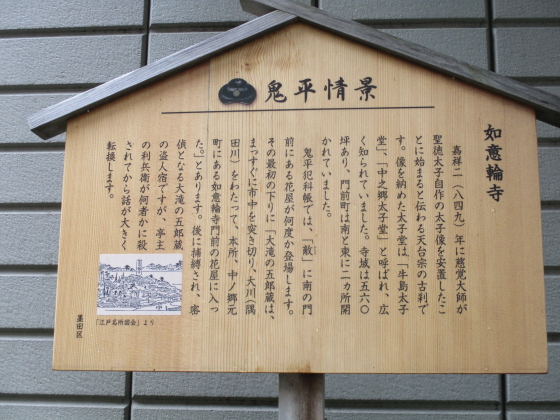 鬼平情景
如意輪寺
嘉祥二(八四九)年に慈覚大師が
聖徳太子自作の太子像を安置したこ
とに始まると伝わる天台宗の古刹で
す。像を納めた太子堂は「牛島太子
堂」、「中之郷太子堂」と呼ばれ、広
く知られていました。寺域は五六〇
坪あり、門前町は南と東に二ヵ所開
かれていました。
鬼平犯科帳では、「敵」に南の門
前にある花屋が何度か登場します。
その最初の下りに「大滝の五郎蔵は、
まっすぐに市中を突き切り、大川(隅
田川)をわたって、本所、中ノ郷元
町にある如意輪寺門前の花屋に入っ
た。」とあります。後に捕縛され、密
偵となる大滝の五郎蔵
の盗人宿ですが、亭主
の利兵衛が何者かに殺
されてから話が大きく
転換します。
「江戸名所図会」より
墨田区